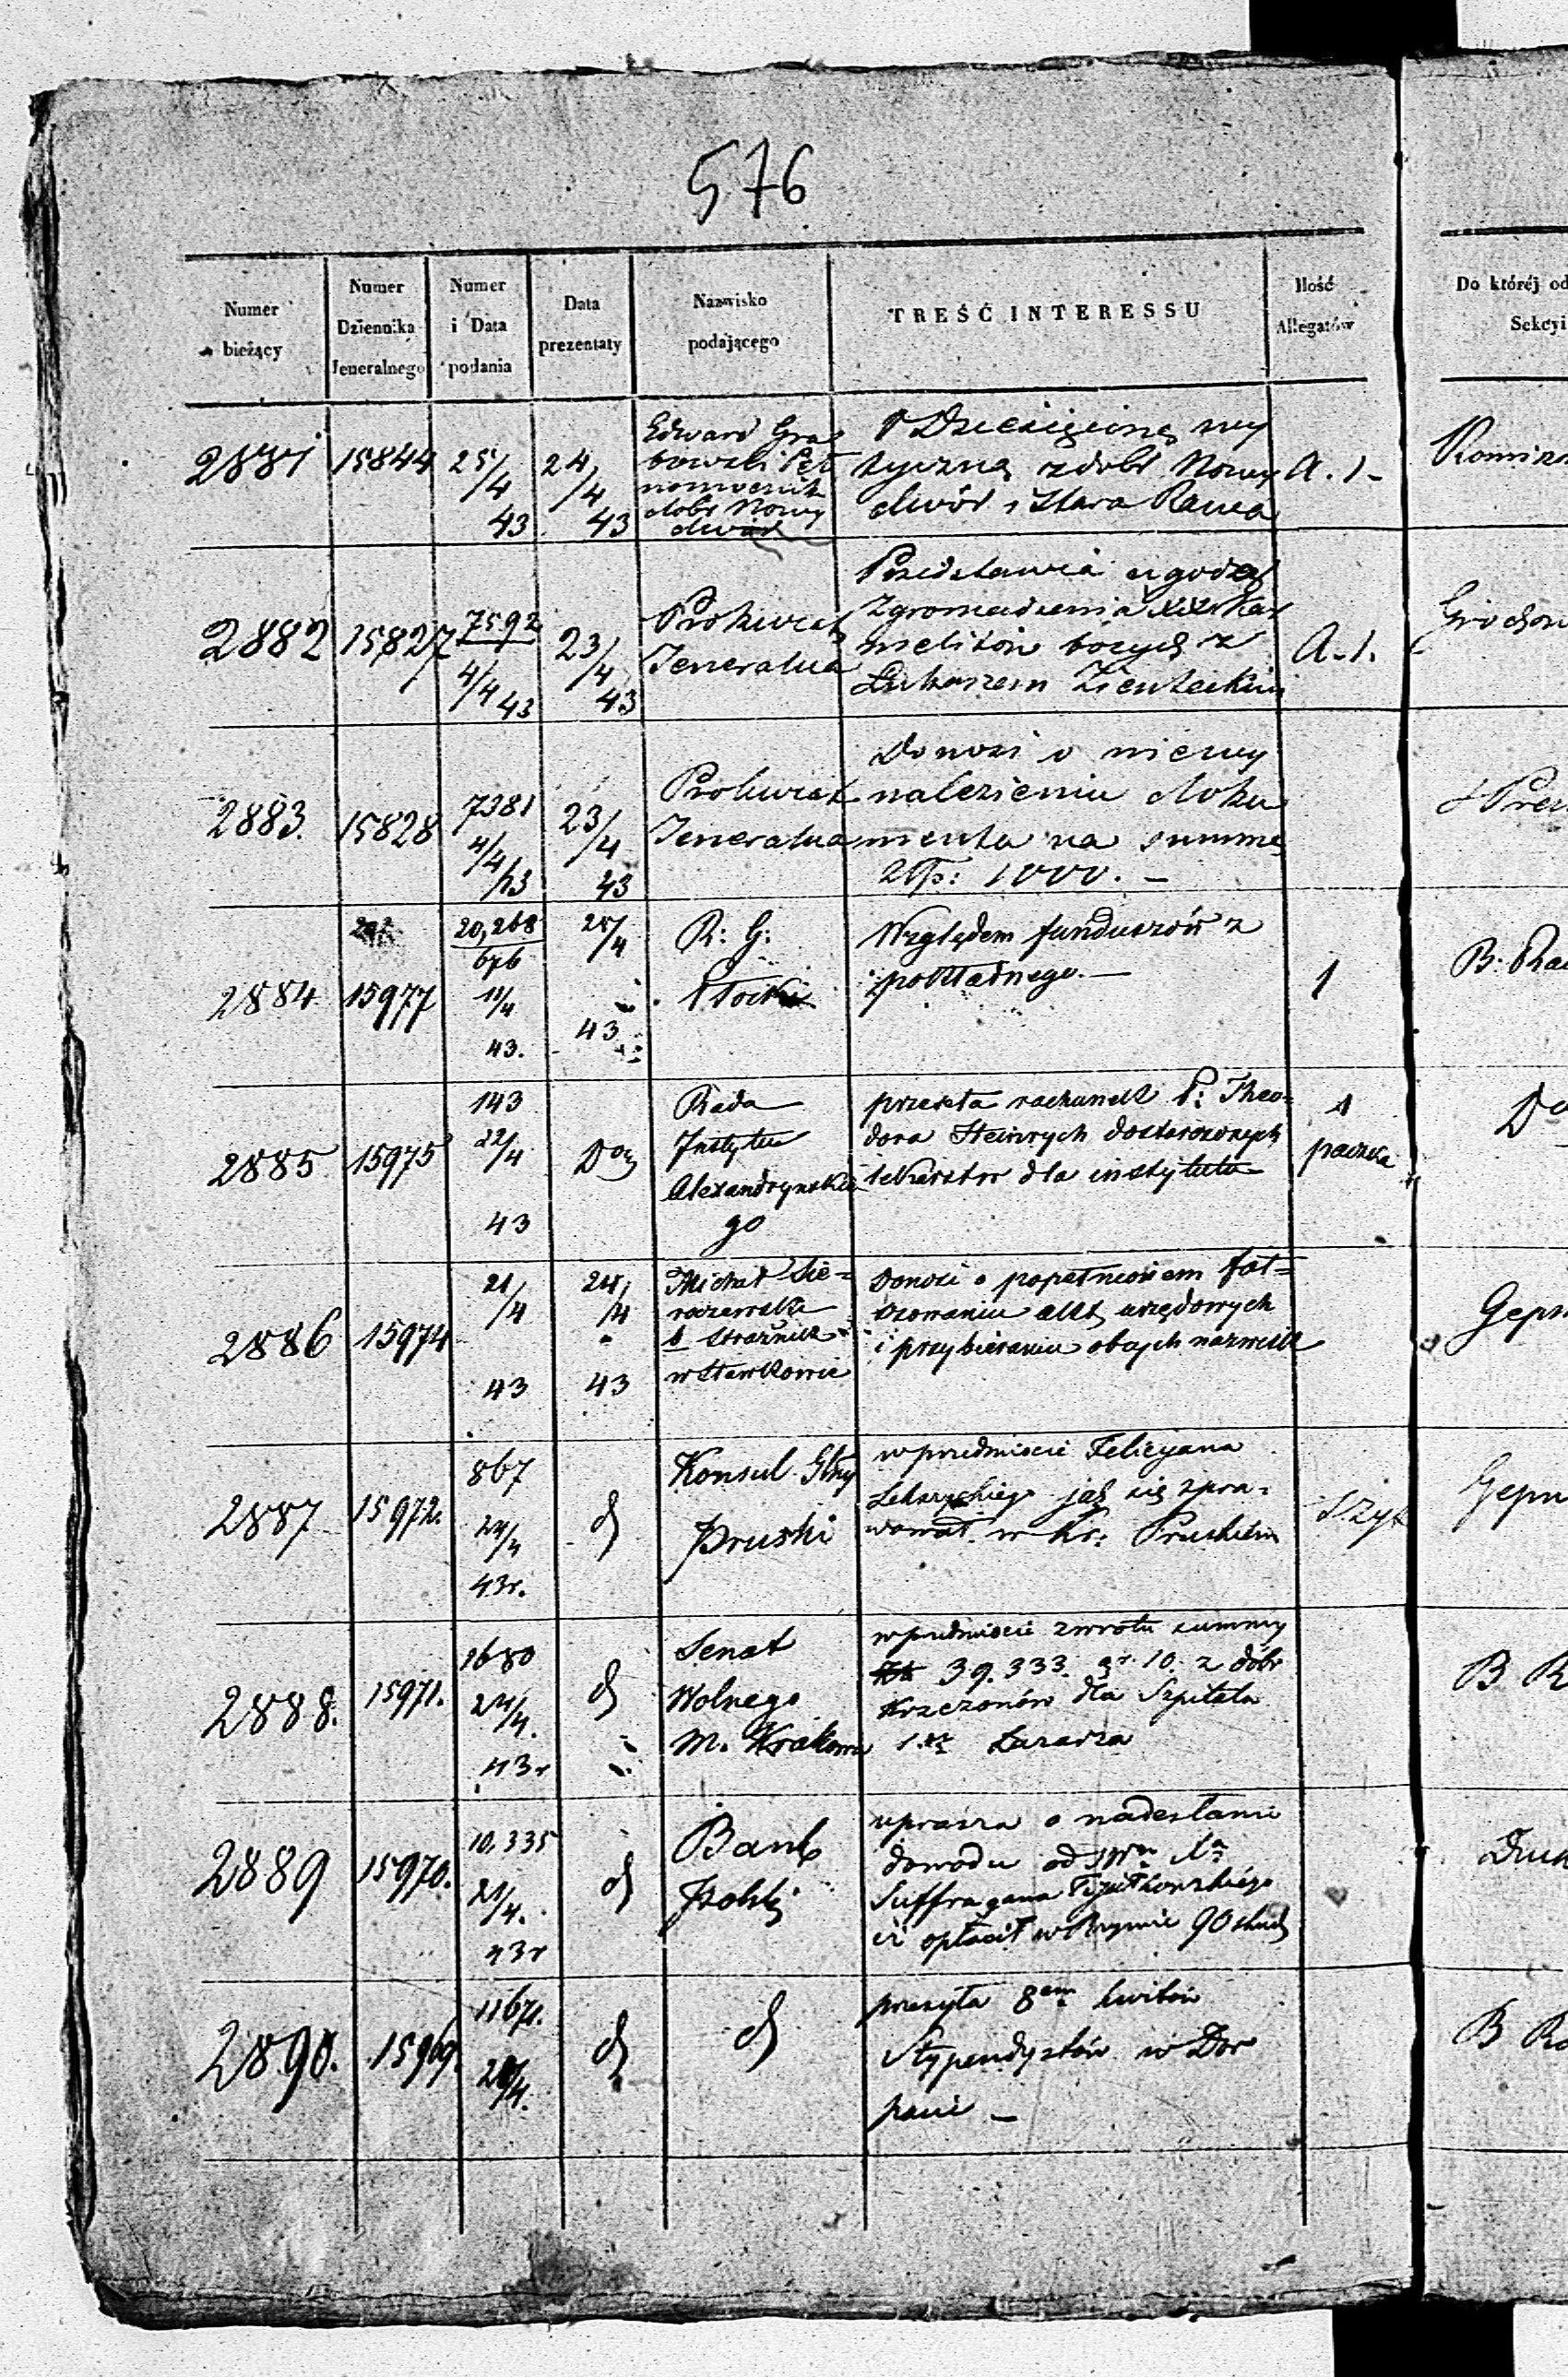 576
Numer bieżący
Numer Dziennika Jeneralnego
Numer i Data podania
Data prezentaty
Nazwisko podającego
TREŚĆ INTERESSU
Ilość Allegatów
Do któréj od
Sekcyi
2881 15844 25/4 43 24/4 43
Edward Gra
bowski
dobr Nowy
dwór
O Dziesięcinę wy
tyczną z dobr Nowy
dwór i Stara Rawa
A. 1-
2882 15827 7592 4/4 43 23/4 43
Prokurat
Jeneralna
Przedstawia ugodę
Zgromadzenia
melitów bosych z
Łukaszem Zienteckim
A. 1.
2883. 15828 7381 4/4 43 23/4 43
Prokurat
Jeneralna
Donosi o niewy
nalezieniu doku
mentu na summę
Złp: 1000. –
2884 15977 20,268 676 11/4 43. 25/4 43
R: G:
Płocki
Względem funduszów z
pokładnego. –
1
2885 15975 143 22/4 43
Rada
Instytu
Alexandryńskie
go
przesyła rachunek P: Theo-
dora Heinrych dostarczonych
lekarstw dla instytutu
1
paczka
2886 15974 21/4 43 24/4 43
Michał Sie=
raczewski
b Strażnik
w Sławkowie
Donosi o popełnionem fał=
szowaniu akt urzędowych
i przybieraniu obcych nazwisk
2887 15972. 867 24/4 43r. d
Konsul Głny
Pruski
w przedmiocie Felicyana
jak się spra=
wował w Kr: Pruskiém
Szyt
2888. 15971. 1680 24/4. 43r d
Senat
Wolnego
M. Krakowa
w przedmiocie zwrotu summy
39.333. gr 10. z dóbr
Krzczonów dla Szpitala
Łazarza
2889 15970. 10.335 21/4. 43r d
Bank
Polski
uprasza o nadesłanie
dowodu od
Suffragana
iż opłacił w Rzymie 90
2890. 15969. 11671. /4. d
d
przesyła 8em kwitów
Stypendystów w Dor
pacie –